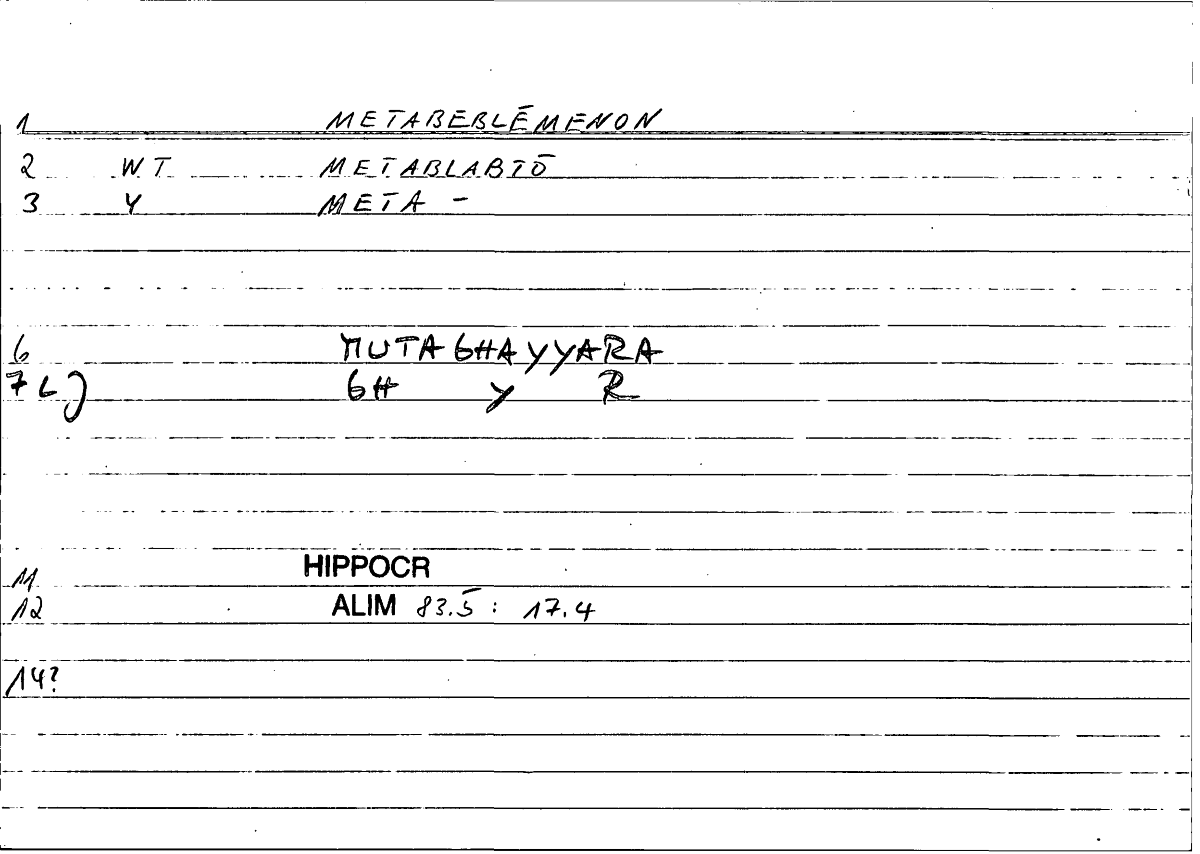 1 METABEBLĒMENON
2 WT METABLABTŌ
3 Y META -
6 MUTAGHAYYARA
7 GH Y R
11 HIPPOCR
12 ALIM 83.5 : 17.4
14?